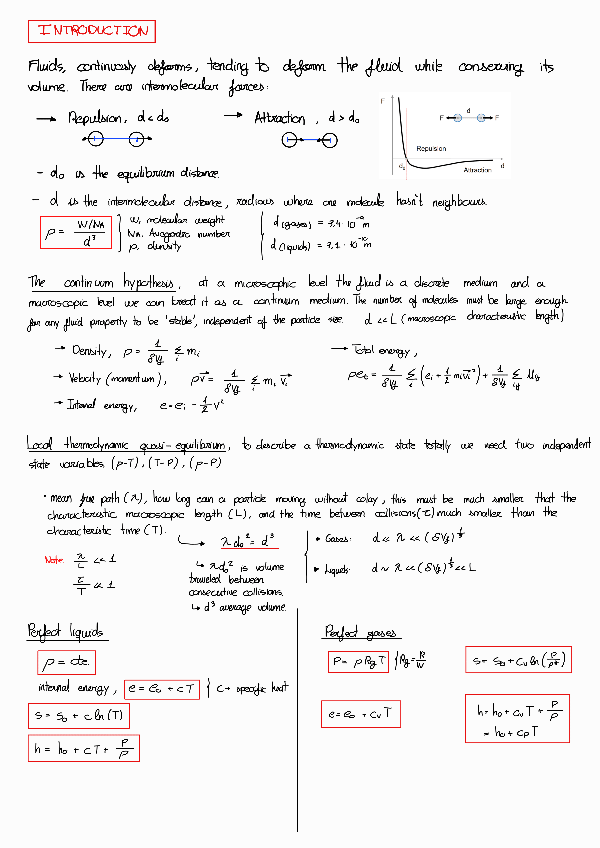 INTRODUCTION
Fluids, continuously deforms, tending to deform the fluid while conserving its
volume. There are intermolecular forces:
→ Repulsion, d < d₀
→ Attraction, d > d₀
F
d
F F
Repulsion
d₀
d
Attraction
- d₀ is the equilibrium distance.
- d is the intermolecular distance, radious where one molecule hasn't neighbours.
ρ = (W/NA)/d³
W, molecular weight
NA, Avogadro number
ρ, density
d(gases) = 3,4·10⁻⁹m
d(liquids) = 3,1·10⁻¹⁰m
The continuum hypothesis, at a microscophic level the fluid is a discrete medium and a
macroscopic level we can treat it as a continuum medium. The number of molecules must be large enough
for any fluid property to be 'stable', independent of the particle size. d << L (macroscopic characteristic length)
→ Density, ρ = 1/δV Σᵢ mᵢ
→ Total energy,
→ Velocity (momentum), ρv⃗ = 1/δV Σᵢ mᵢ v⃗ᵢ
ρeₜ = 1/δV Σᵢ (eᵢ + 1/2 mᵢv⃗ᵢ²) + 1/δV Σᵢⱼ Uᵢⱼ
→ Internal energy, e = eₜ - 1/2 v²
Local thermodynamic quasi-equilibrium, to describe a thermodynamic state totally we need two independent
state variables (ρ-T), (T-P), (ρ-P)
· mean free path (λ), how long can a particle moving without colay, this must be much smaller that the
characteristic macroscopic length (L), and the time between collisions (τ) much smaller than the
characteristic time (T).
λd₀² = d³
Note: λ/L << 1
τ/T << 1
↳ λd₀² is volume
traveled between
consecutive collisions.
↳ d³ average volume.
• Gases: d << λ << (δV)^1/3
• Liquids: d ~ λ << (δV)^1/3 << L
Perfect liquids
ρ = cte
internal energy, e = e₀ + cT { c → specific heat
s = s₀ + c ln(T)
h = h₀ + cT + P/ρ
Perfect gases
P = ρRgT { Rg = R/W
s = s₀ + cᵥ ln(P/ρ^γ)
e = e₀ + cᵥT
h = h₀ + cᵥT + P/ρ
= h₀ + cₚT